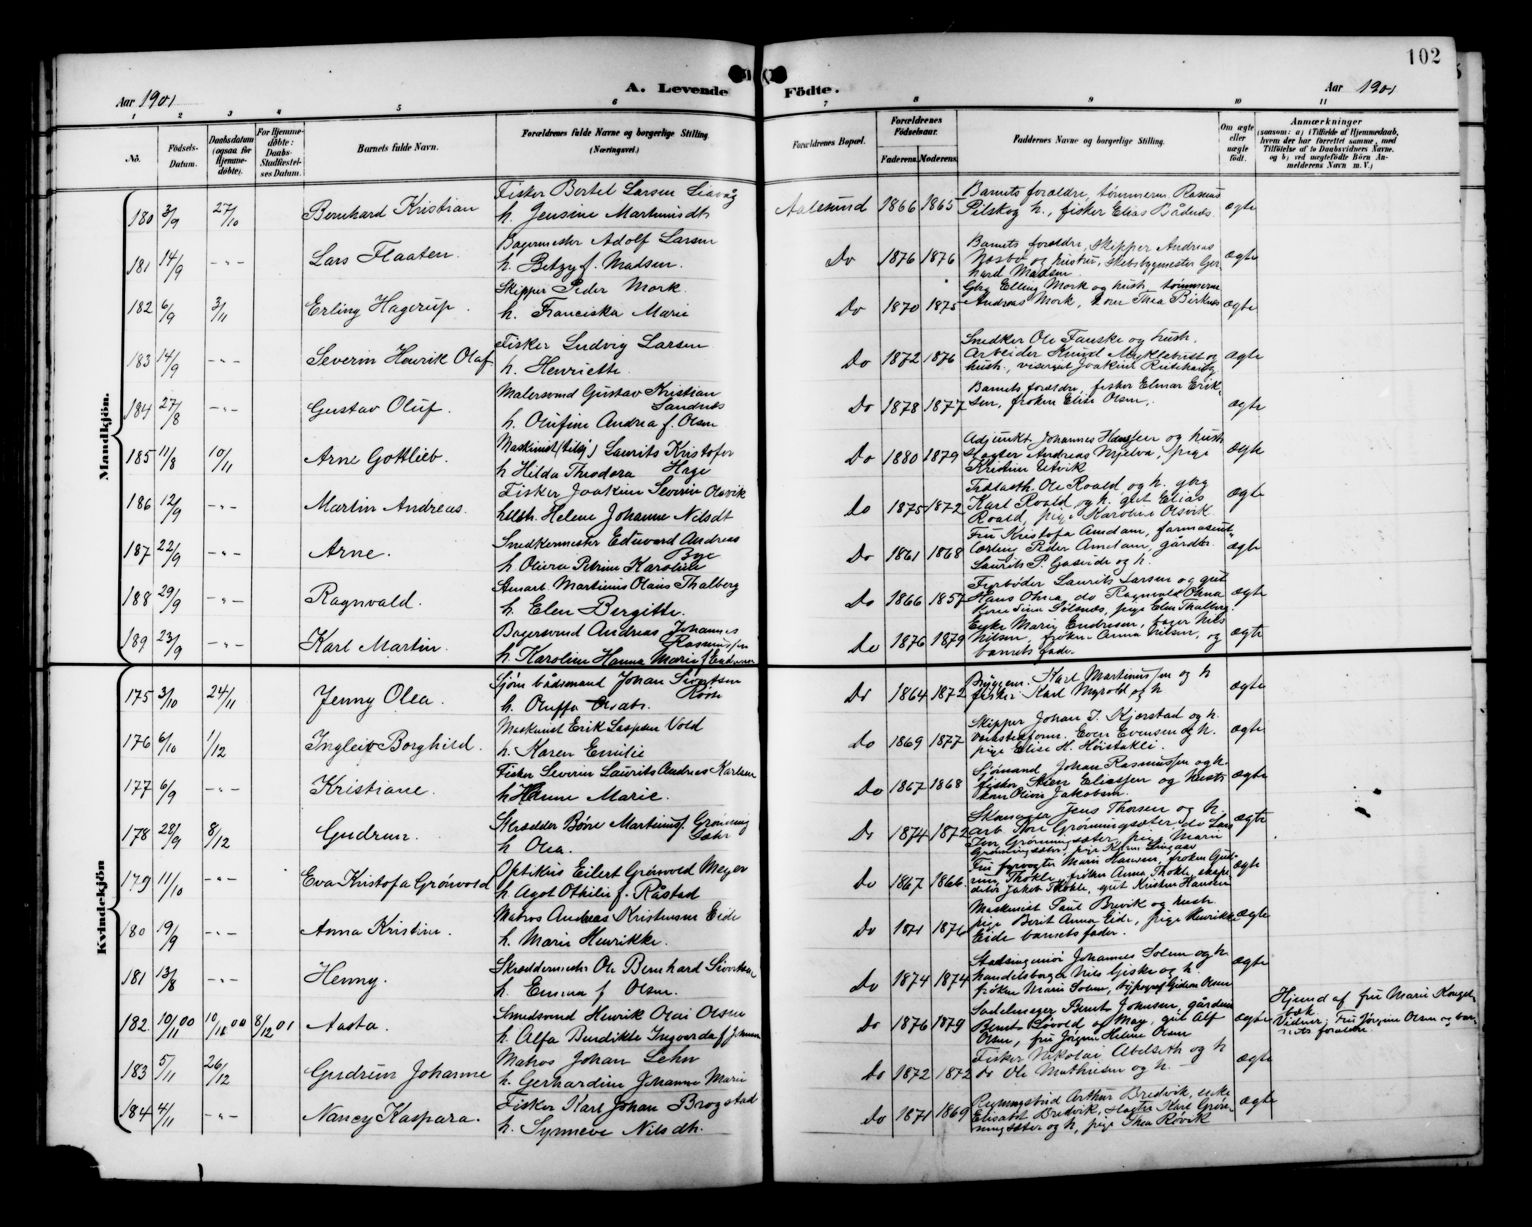 102
Aar 1901
A. Levende Födte.
Aar 1901
1 2 3 4 5 6 7 8 9 10 11
No.
Födsels-Datum.
Daabsdatum (ogsaa for Hjemme-döbte).
For Hjemme-döbte: Daabs-Stadfæstel-ses Datum.
Barnets fulde Navn.
Forældrenes fulde Navne og borgerlige Stilling. (Næringsvei.)
Forældrenes Bopæl.
Forældrenes Födselsaar.
Faderens. Moderens.
Faddernes Navne og borgerlige Stilling.
Om ægte eller uægte födt.
Anmærkninger
(saasom: a) i Tilfælde af Hjemmedaab, hvem der har forrettet samme, med Tilföielse af to Daabsvidners Navne, og b) ved uægtefödte Börn An-melderens Navn m. V.)
Mandkjön.
180 3/9 27/10 Bernhard Kristian
Fisker Bertel Larsen Liavåg
h. Jensine Martinusdt
Aalesund 1866 1865
Barnets forældre, tømmerm Rasmus
Pilskog h., fisker Elias Bådnæs.
ægte
181 14/9 -"- Lars Flaaten.
Bagermester Adolf Larsen
h. Betzy f. Madsen.
Do 1876 1876
Barnets forældre, Skipper Andreas
Næsbø og hustru, Skibsbygmester Ger
hard Madsen
ægte
182 6/9 3/11 Erling Hagerup.
Skipper Peder Mork
h. Franciska Marie
Do 1870 1875
Gbg Elling Mork og hust tømmerm
Andreas Mork, Thea Birknes
ægte
183 14/9 -"- Severin Henrik Olaf
Fisker Ludvig Larsen
h. Henriette
Do 1872 1876
Snedker Ole Fauske og hust.
Arbeider Knud Myklebust og
hust., Joakim
ægte
184 27/8 -"- Gustav Oluf.
Malersvend Gustav Kristian
Sandnæs
h. Olufine Andrea f. Olsen
Do 1878 1877
Barnets forældre, fisker Elmar Erik-
sen, frøken Elise Olsen.
ægte
185 11/8 10/11 Arne Gottlieb.
Maskinist Laurits Kristofer
Hage
h Hilda Theodora
Do 1880 1879
Adjunkt Johannes Hansen og hust
Slagter Andreas Myelva, pige
Kristine Utvik
ægte
186 12/9 -"- Martin Andreas.
Fisker Joakim Severin Olsvik
hust. Helene Johanne Nilsdt
Do 1875 1872
Ole Roald og h. gbg
Karl Roald og h. gut Elias
Roald, pige Karoline Olsvik
ægte
187 22/9 -"- Arne.
Snedkermester Eduard Andreas
Bye
h. Olivia Petrine Karoline
Do 1861 1868
Fru Kristofa Amdam, farmaseut
Peder Amdam, gårdbr.
Laurits P. Gåseide og h.
ægte
188 29/9 -"- Ragnvald.
Martinius Olaus Thalberg
h. Elen Bergitte.
Do 1866 1857
Forbøder Laurits Larsen og gut
Hans Onea, do Ragnvald Onna
Sina Solsnæs, pige Elen Thalberg
ægte
189 23/9 -"- Karl Martin.
Bagersvend Andreas Johannes
Rasmussen
h. Karoline Hanna Marie f Endresen
Do 1876 1879
Enke Marie Endresen, bager Nils
Nilsen, frøken Anna Nilsen, og
barnets fader.
ægte
Kvindekjön
175 3/10 24/11 Jenny Olea.
Sjøm bådsmand Johan Sivertsen
h. Oluffa
Do 1864 1872
Bryggem. Karl Martinussen og h
fisker Karl Myrold og h
ægte
176 6/10 1/12 Ingleiv Borghild.
Maskinist Erik Vold
h. Karen Emilie
Do 1869 1877
Skipper Johan J. Kjærstad og h.
Verkstedform. Even Evensen og h.
pige Elise H. Høistakli.
ægte
177 6/9 -"- Kristiane.
Fisker Severin Laurits Andreas Karlsen
h Hanne Marie.
Do 1867 1868
Sjømand Johan Rasmussen og h
fisker Sten Eliassen og hust
Oliver Jakobsen.
ægte
178 28/9 8/12 Gudrun.
Skrædder Børre Martinus f. Grønning
Sæter
h Olea.
Do 1874 1872
Skomager Jens Thorsen og h.
arb Tore Grønningsæter, do Lars
Iver Grønningsæter, pige Marie
Grønningsæter, pige
ægte
179 11/10 -"- Eva Kristofa Grønvold
Optikus Eilert Grønvold Meyer
h Agot Othilie f. Råstad
Do 1867 1866
Fru Marie Hansen, frøken Gud
run Thokle, frøken Anna Thokle, ekspe
ditør Jakob Thokle, gut Kristen Hansen
ægte
180 19/9 -"- Anna Kristine.
Matros Andreas Kristensen Eide
h. Marie Henrikke.
Do 1871 1876
Maskinist Paul Brevik og hust
pige Berit Anna Eide, pige Henrikke
Eide barnets fader.
ægte
181 13/8 -"- Henny.
Skræddermester Ole Bernhard Sivertsen
h. Emma f Olsen.
Do 1874 1874
Stadsingeniør Johannes Solem og h
handelsborger Nils Giske og h.
frøken Marie Solem, typograf Gideon Olsen
ægte
182. 10/11 00 10/12 00 8/12 01 Aasta.
Smedsvend Henrik Olai Olsen
h. Alfa Bendikte Ingvarda f. Johnsen
Do 1876 1879
Sadelmager Bernt Johnsen, gårdmm
Bernt Løvold og May, gut Alf
Olsen, fru Jørgine Helene Olsen
ægte
Hjemd af fru Marie Kongel-
bæk
Vidner: Fru Jørgine Olsen og bar
nets forældre.
183 5/11 26/12 Gudrun Johanne
Matros Johan Lehn
h. Gerhardine Johanne Marie
Do 1872 1872
Fisker Nikolai Abelseth og h
do Ole Mathiesen og h.
ægte
184 4/11 -"- Nancy Kaspara.
Fisker Karl Johan Brogstad
h. Synneve Nilsdt.
Do 1871 1869
Arthur Bredvik, enke
Elisabet Bredvik, Slagter Karl Grøn-
ningsæter og h, pige Thea Røvik
ægte